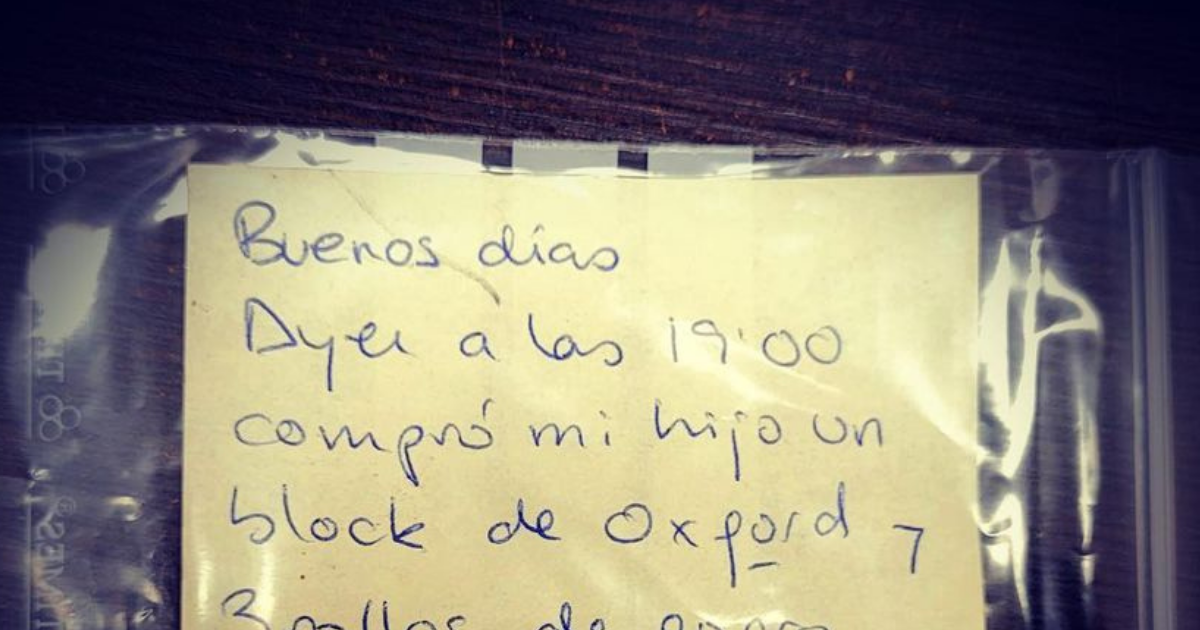 Buenos días
Dyer a las 19:00
compró mi hijo un
block de Oxford y
3 rollos de